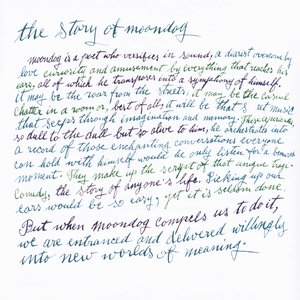 the story of moondog
moondog is a poet who versifies in sound, a diarist overcome by
love curiosity and amusement by everything that reaches his
ears, all of which he transposes into a symphony of himself.
it may be the roar from the streets, it may be the casual
chatter in a room or, best of all, it will be that music
that seeps through imagination and memory. These
so dull to the dull but so alive to him, he orchestrates into
a record of those enchanting conversations everyone
can hold with himself would he only listen for a
moment. They make up the script of that unique tragi-
comedy, the story of anyone's life. Picking up our
ears would be so easy; yet it is seldom done.
But when moondog compels us to do it,
we are entranced and delivered willingly
into new worlds of meaning.